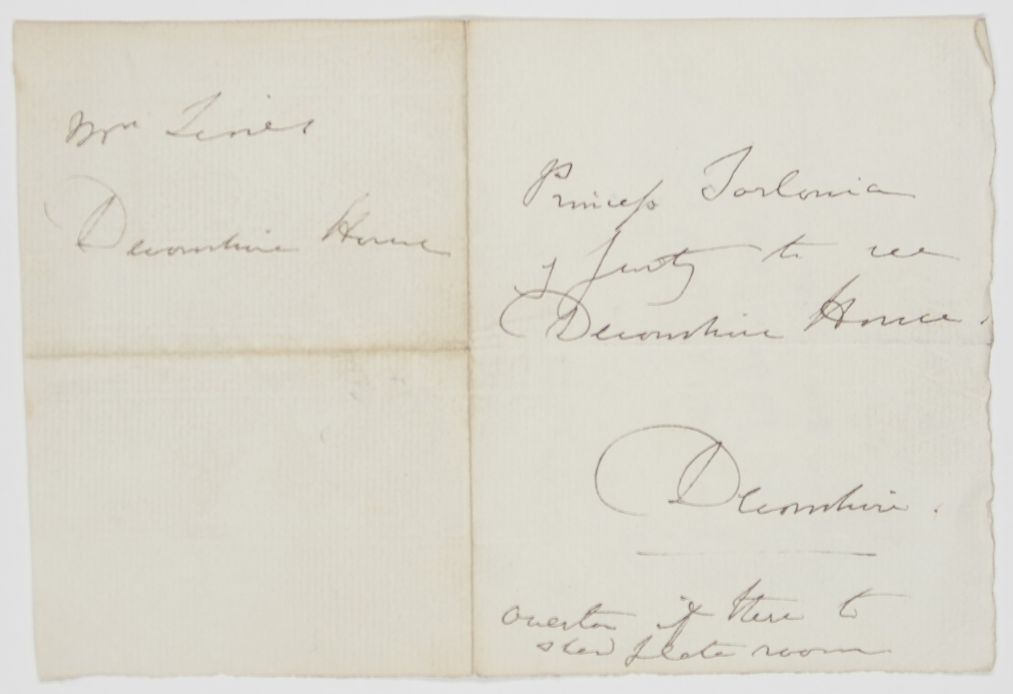 Mrs
Devonshire House
Princess Torlonia
& party to see
Devonshire House.
Devonshire.
if there to
plate room